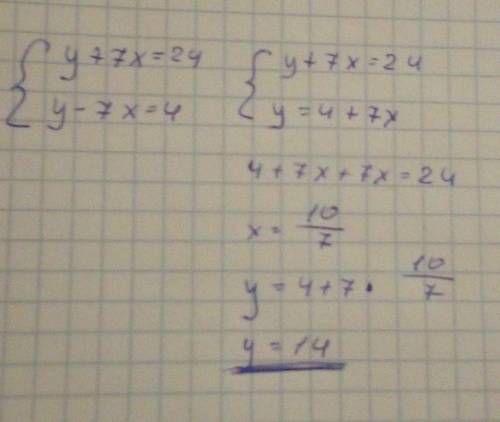 y+7x=24 y+7x=24
y-7x=4 y=4+7x
4+7x+7x=24
x=10/7
y=4+7·10/7
y=14